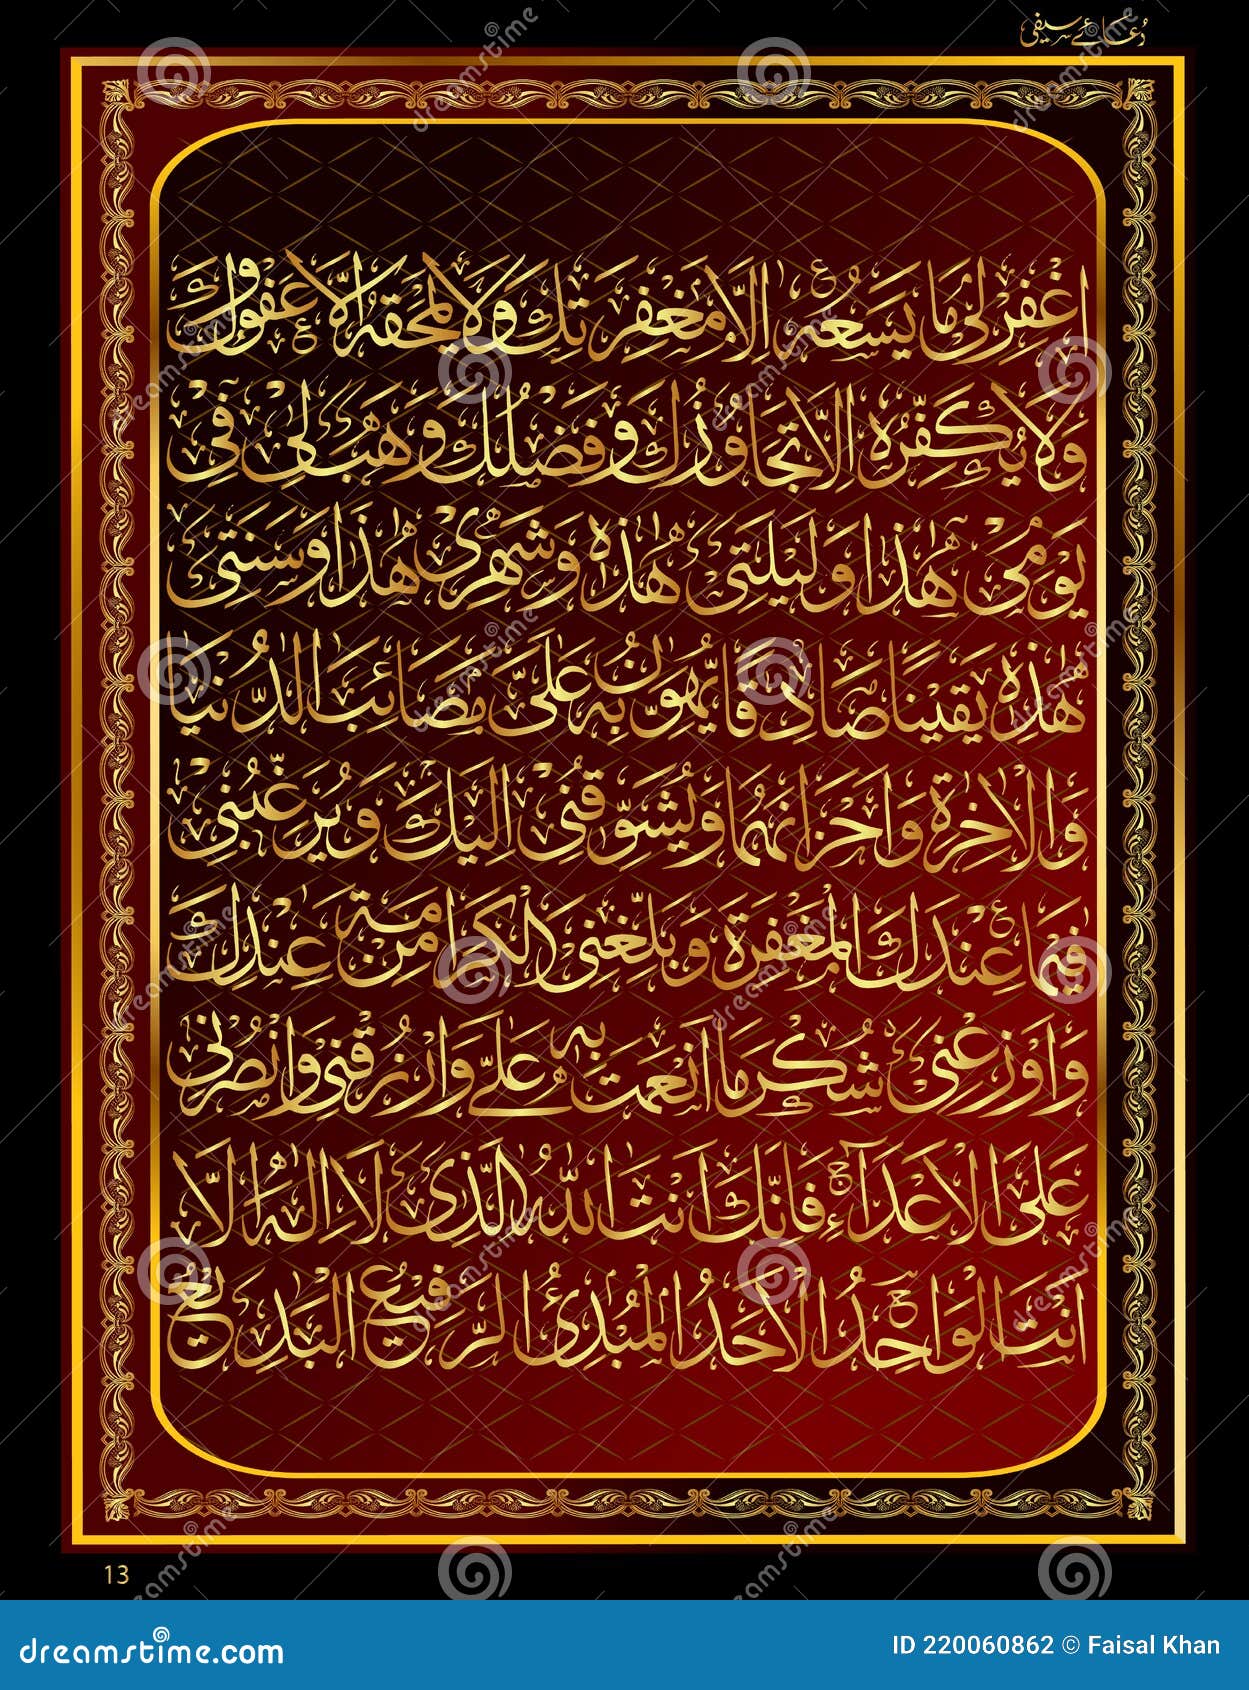 دُعائے سیفی
اِغْفِرْ لِیْ مَا یَسَعُہٗ اِلَّا مَغْفِرَتُكَ وَلَا یَمْحَقُہٗ اِلَّا عَفْوُكَ
وَلَا یُكَفِّرُہٗ اِلَّا تَجَاوُزُكَ وَفَضْلُكَ وَهَبْ لِیْ فِیْ
یَوْمِیْ هٰذَا وَلَیْلَتِیْ هٰذِہٖ وَشَهْرِیْ هٰذَا وَسَنَتِیْ
هٰذِہٖ یَقِیْنًا صَادِقًا یُّهَوِّنُ بِہٖ عَلَیَّ مَصَائِبَ الدُّنْیَا
وَالْاٰخِرَۃِ وَاَحْزَانَهُمَا وَیُشَوِّقُنِیْ اِلَیْكَ وَیُرَغِّبُنِیْ
فِیْمَا عِنْدَكَ الْمَغْفِرَۃَ وَبَلِّغْنِی الْكَرَامَۃَ مِنْ عِنْدِكَ
وَاَوْزِعْنِیْ شُكْرَ مَا اَنْعَمْتَ بِہٖ عَلَیَّ وَارْزُقْنِیْ وَانْصُرْنِیْ
عَلَی الْاَعْدَآءِ فَاِنَّكَ اَنْتَ اللّٰہُ الَّذِیْ لَا اِلٰہَ اِلَّا
اَنْتَ الْوَاحِدُ الْاَحَدُ الْمُبْدِئُ الرَّفِیْعُ الْبَدِیْعُ
13
dreamstime.com
ID 220060862 © Faisal Khan